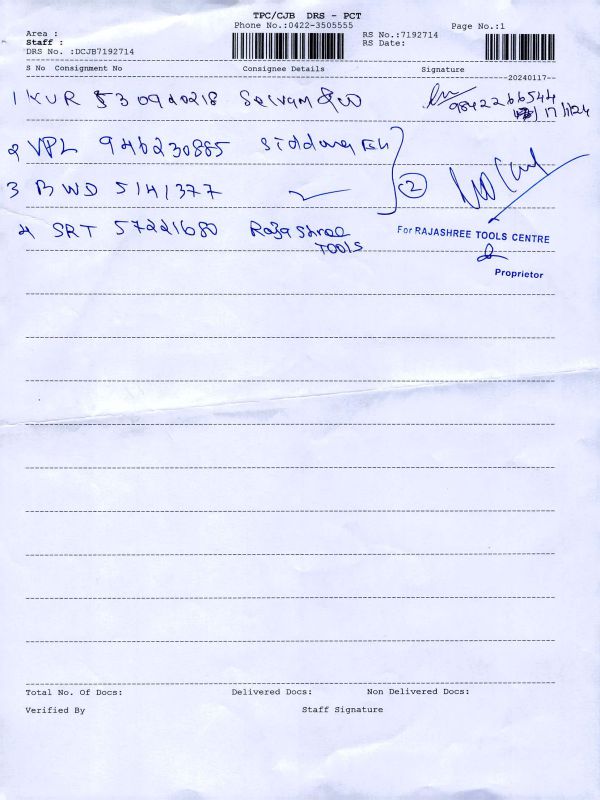 TPC/CJB DRS - PCT
Phone No.:0422-3505555
Page No.:1
Area :
RS No.:7192714
Staff :
RS Date:
DRS No. :DCJB7192714
S No Consignment No Consignee Details Signature
20240117
1 KUR 530920218 Selvam &
9842266544
17/1/24
2 VPL 946230885
3 BWD 5141377
2
4 SRT 57221680 Rajashree
TOOLS
For RAJASHREE TOOLS CENTRE
Proprietor
Total No. Of Docs: Delivered Docs: Non Delivered Docs:
Verified By Staff Signature